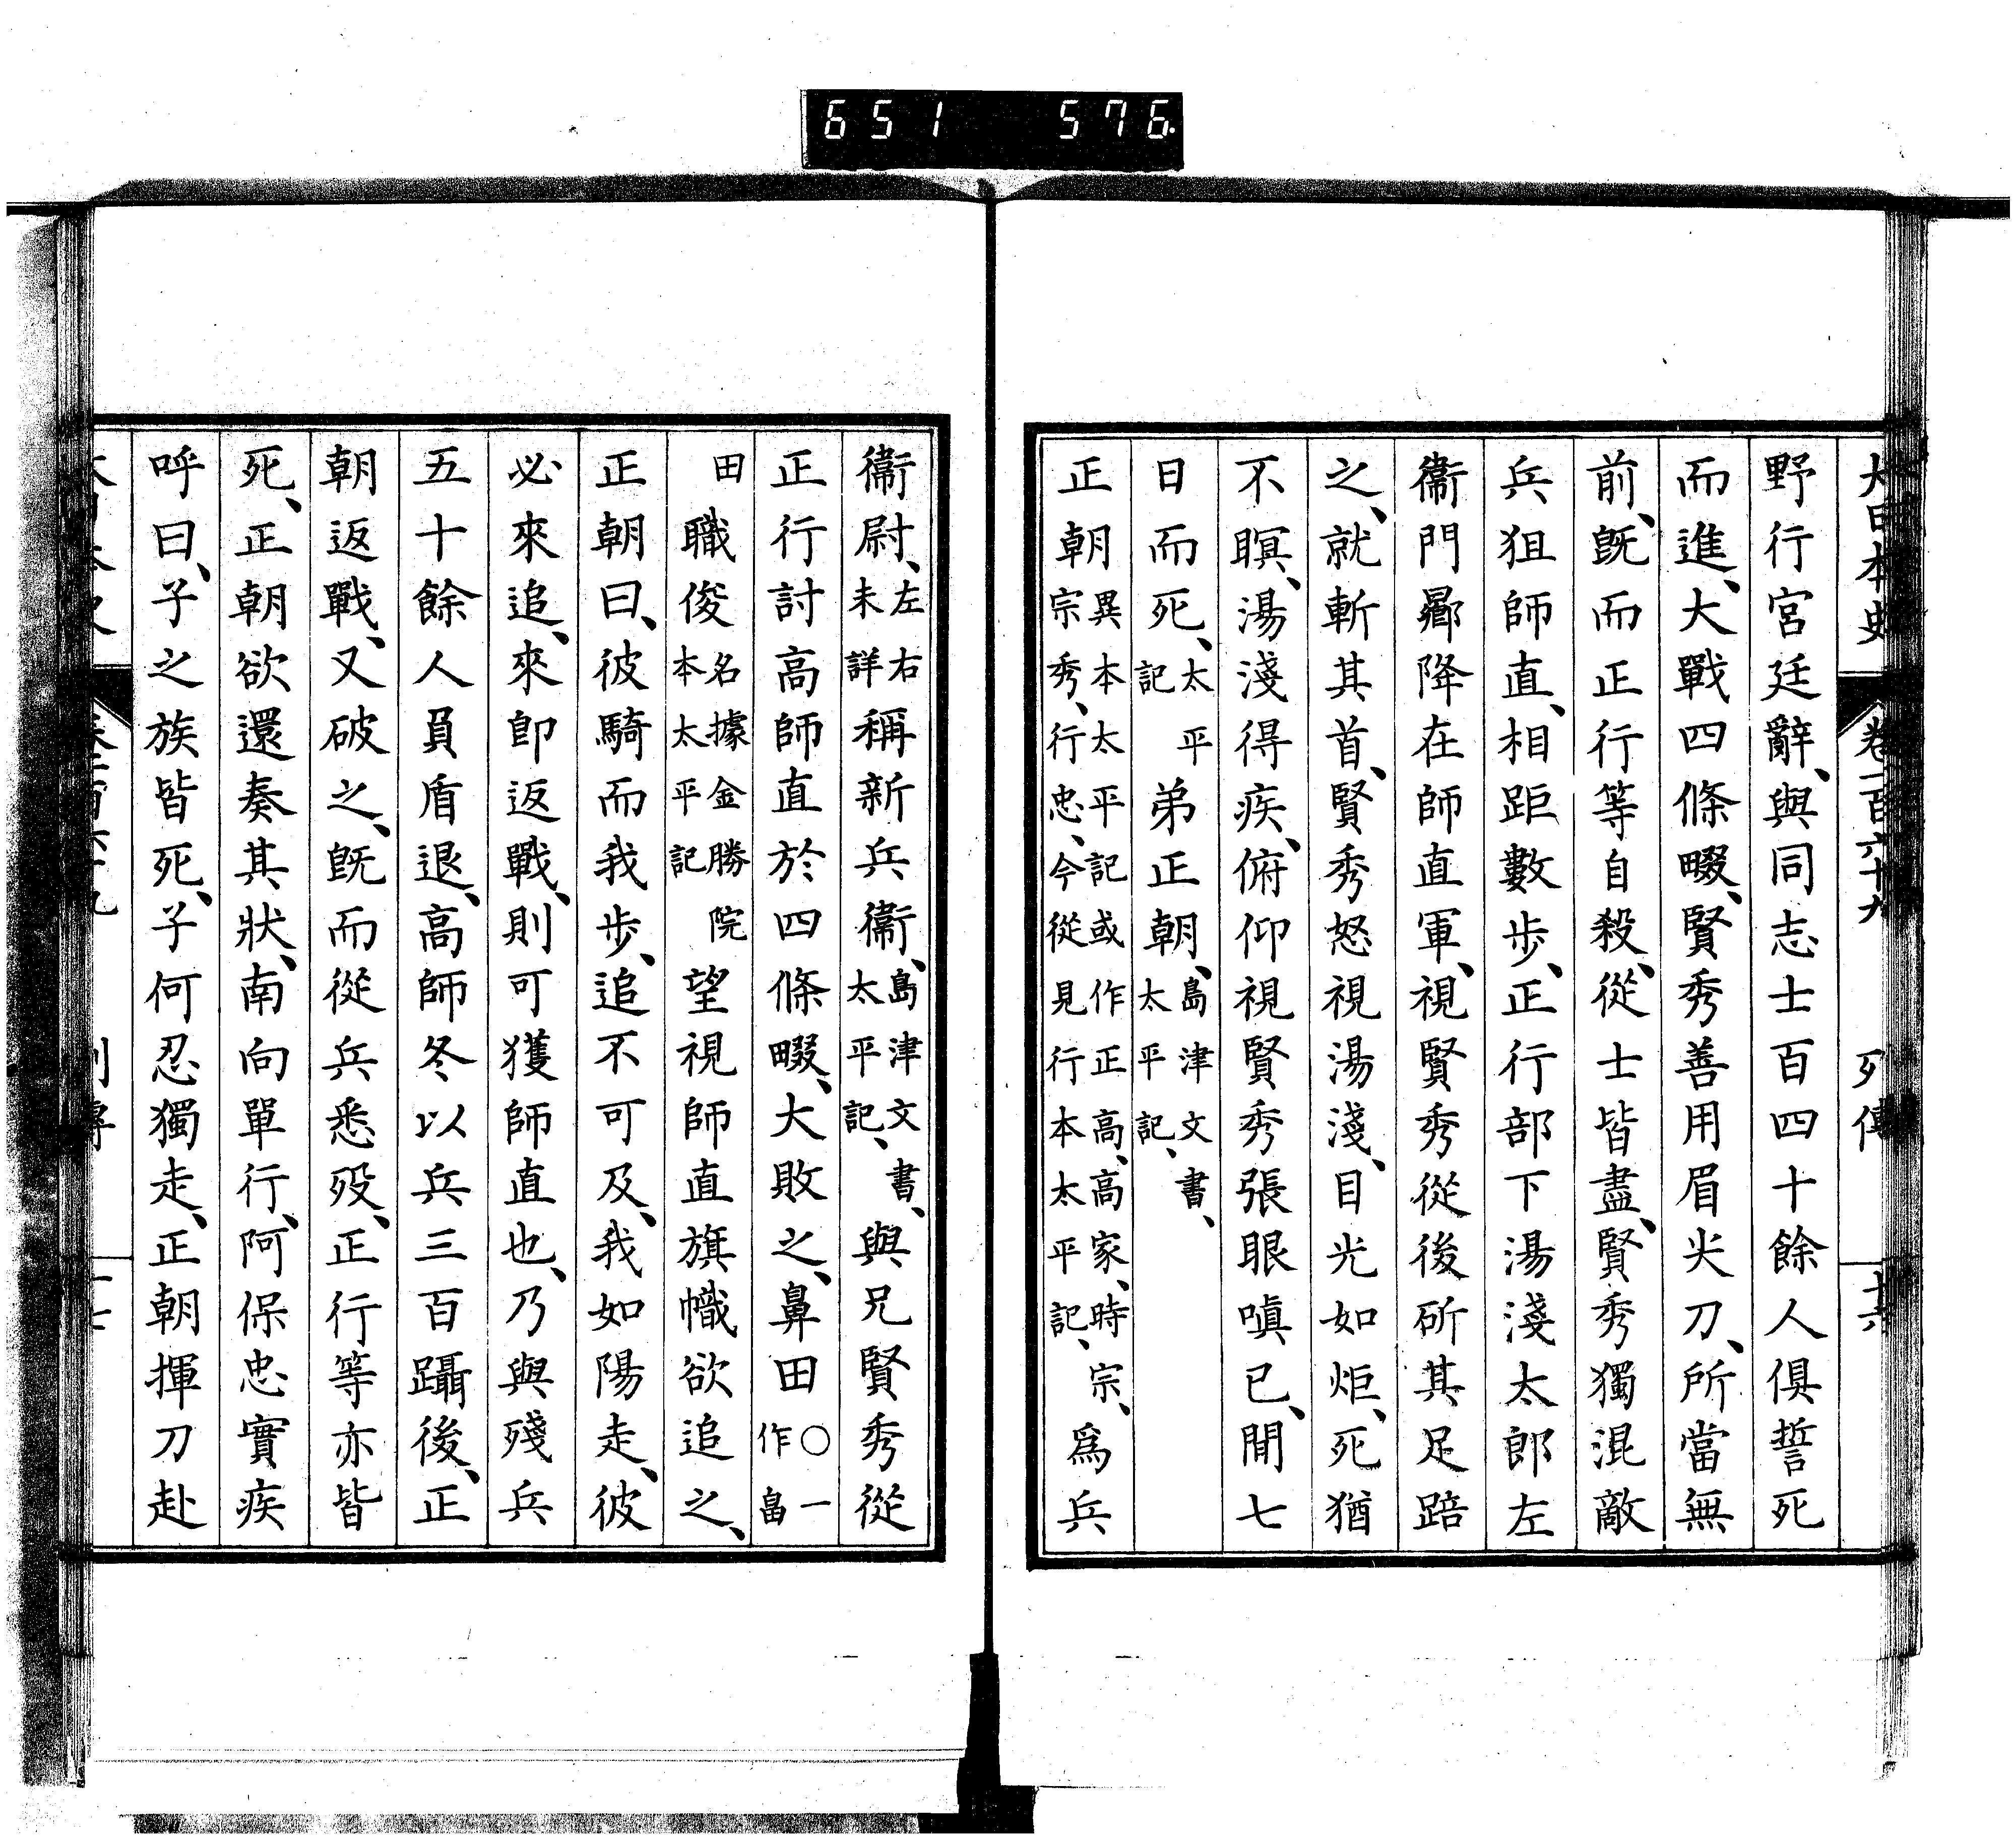 651 576
大日本史 卷一百六十九 列傳 十六
野行宮廷辭、與同志士百四十餘人俱誓死
而進、大戰四條畷、賢秀善用眉尖刀、所當無
前、既而正行等自殺、從士皆盡、賢秀獨混敵
兵狙師直、相距數步、正行部下湯淺太郎左
衞門曏降在師直軍、視賢秀從後斫其足踣
之、就斬其首、賢秀怒視湯淺、目光如炬、死猶
不瞑、湯淺得疾、俯仰視賢秀張眼嗔已、閒七
日而死、太平記 弟正朝、島津文書、太平記、
正朝異本太平記或作正高、高家、時宗、宗秀、行忠、今從見行本太平記、爲兵
衞尉、左右未詳稱新兵衞、島津文書、太平記、與兄賢秀從
正行討高師直於四條畷、大敗之、鼻田○一作畠
田職俊名據金勝院本太平記望視師直旗幟欲追之、
正朝曰、彼騎而我步、追不可及、我如陽走、彼
必來追、來卽返戰、則可獲師直也、乃與殘兵
五十餘人負盾退、高師冬以兵三百躡後、正
朝返戰、又破之、既而從兵悉歿、正行等亦皆
死、正朝欲還奏其狀、南向單行、阿保忠實疾
呼曰、子之族皆死、子何忍獨走、正朝揮刀赴